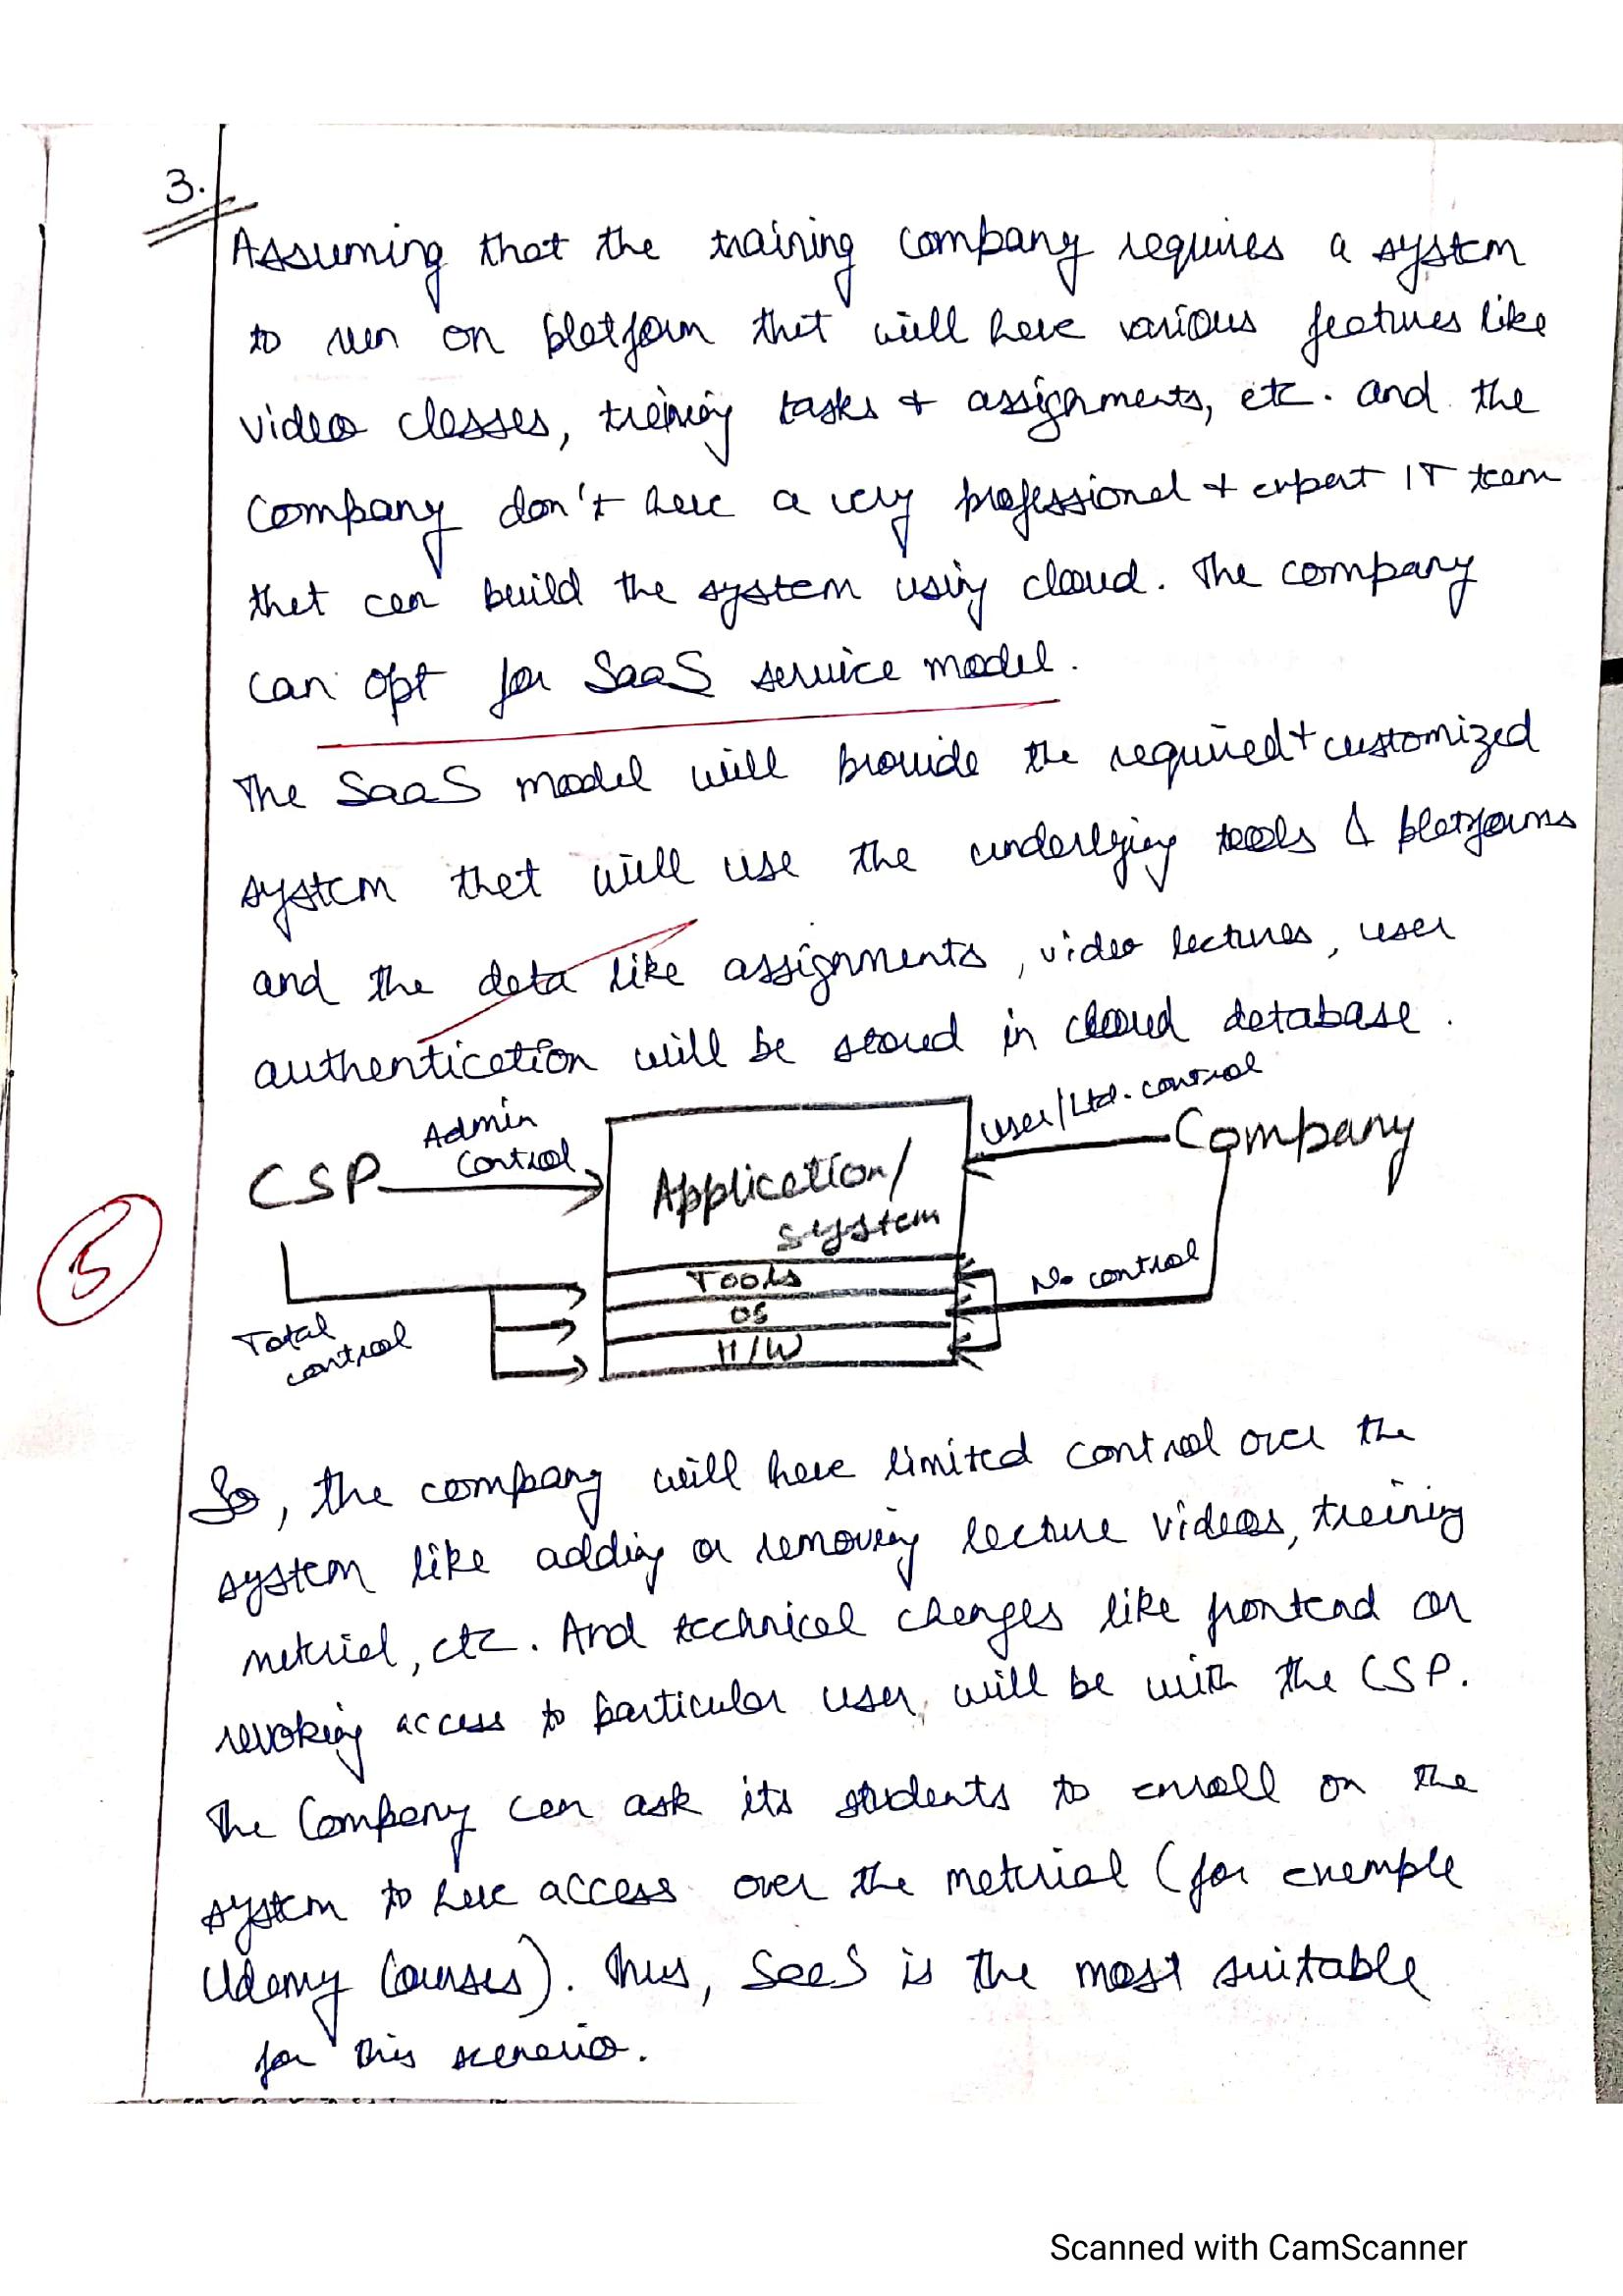 3.
Assuming that the training company requires a system
to run on platform that will have various features like
video classes, training tasks + assignments, etc. and the
company don't have a very professional + expert IT team
that can build the system using cloud. The company
can opt for SaaS service model.
The SaaS model will provide the required + customized
system that will use the underlying tools & platforms
and the data like assignments, video lectures, user
authentication will be stored in cloud database.
Admin
Control
user/Ltd. control
CSP
Company
Application/
system
Tools
OS
H/W
No control
Total
control
5
So, the company will have limited control over the
system like adding or removing lecture videos, training
material, etc. And technical changes like frontend or
revoking access to particular user, will be with the CSP.
The Company can ask its students to enroll on the
system to have access over the material (for example
Udemy Courses). Thus, SaaS is the most suitable
for this scenario.
Scanned with CamScanner